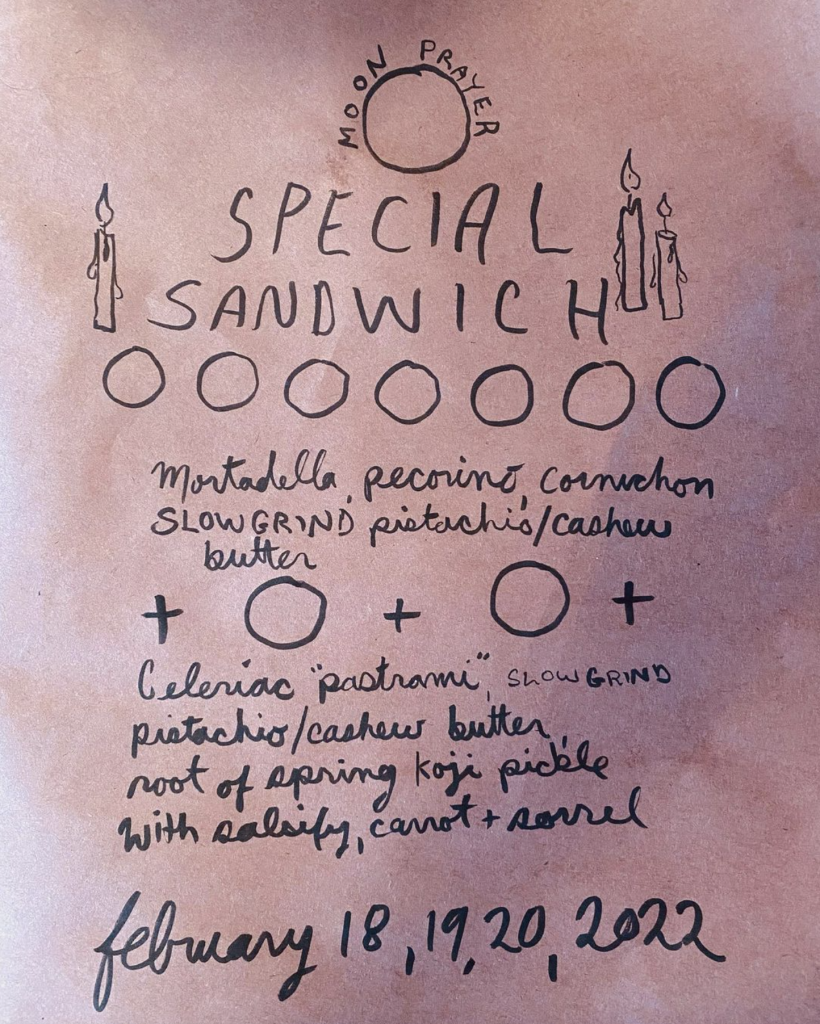 MOON PRAYER
SPECIAL
SANDWICH
Mortadella, pecorino, cornichon
SLOWGRIND pistachio/cashew
butter
+ + +
Celeriac "pastrami", SLOWGRIND
pistachio/cashew butter,
root of spring koji pickle
with salsify, carrot + sorrel
february 18, 19, 20, 2022